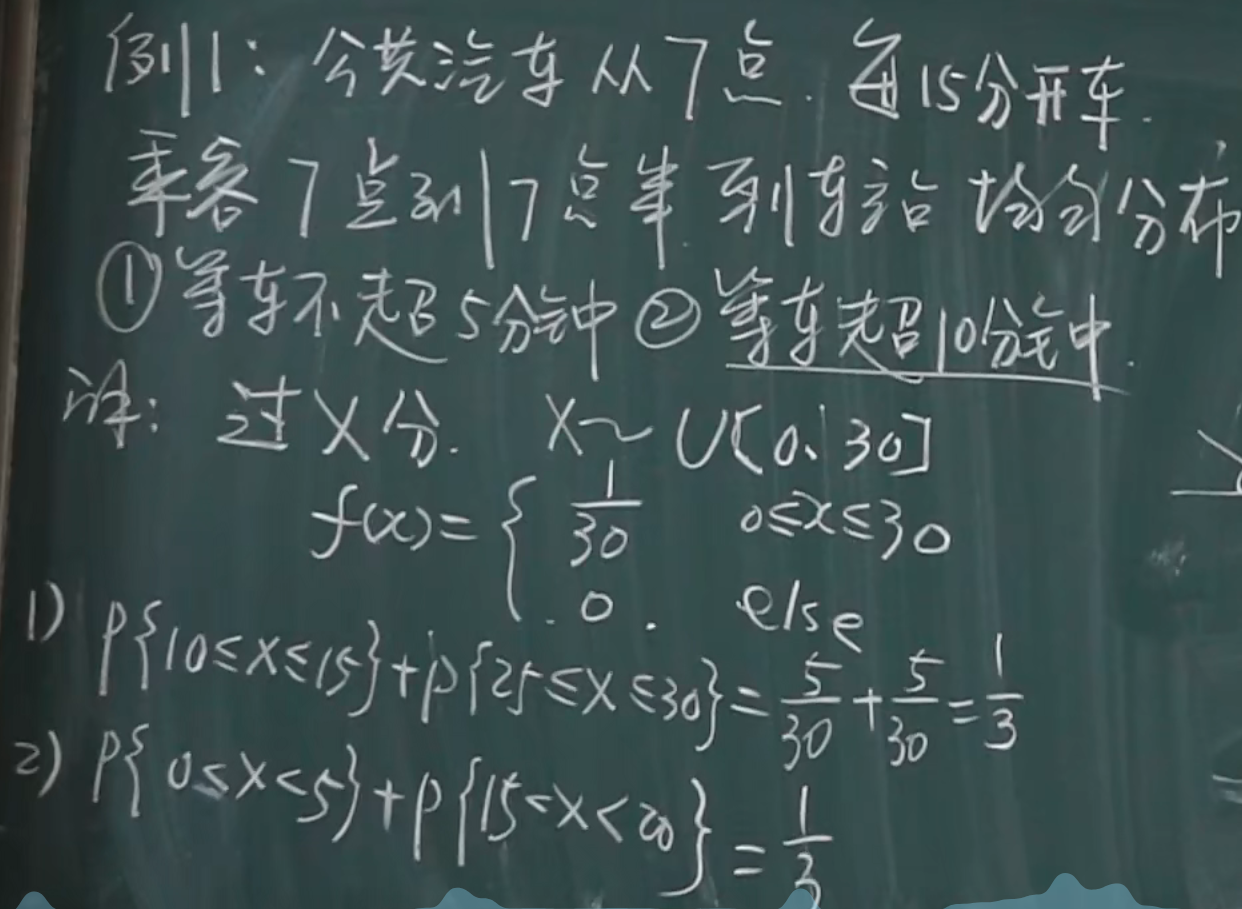 例1: 公共汽车从7点.每15分开车.
乘客7点到7点半.到车站 均匀分布
①等车不超5分钟 ②等车超10分钟.
过X分. X~U[0、30]
f(x)={ 1/30 0≤x≤30
0. else
1) P{10≤X≤15}+P{25≤X≤30}=5/30+5/30=1/3
2) P{0≤X<5}+P{15<X<20}=1/3